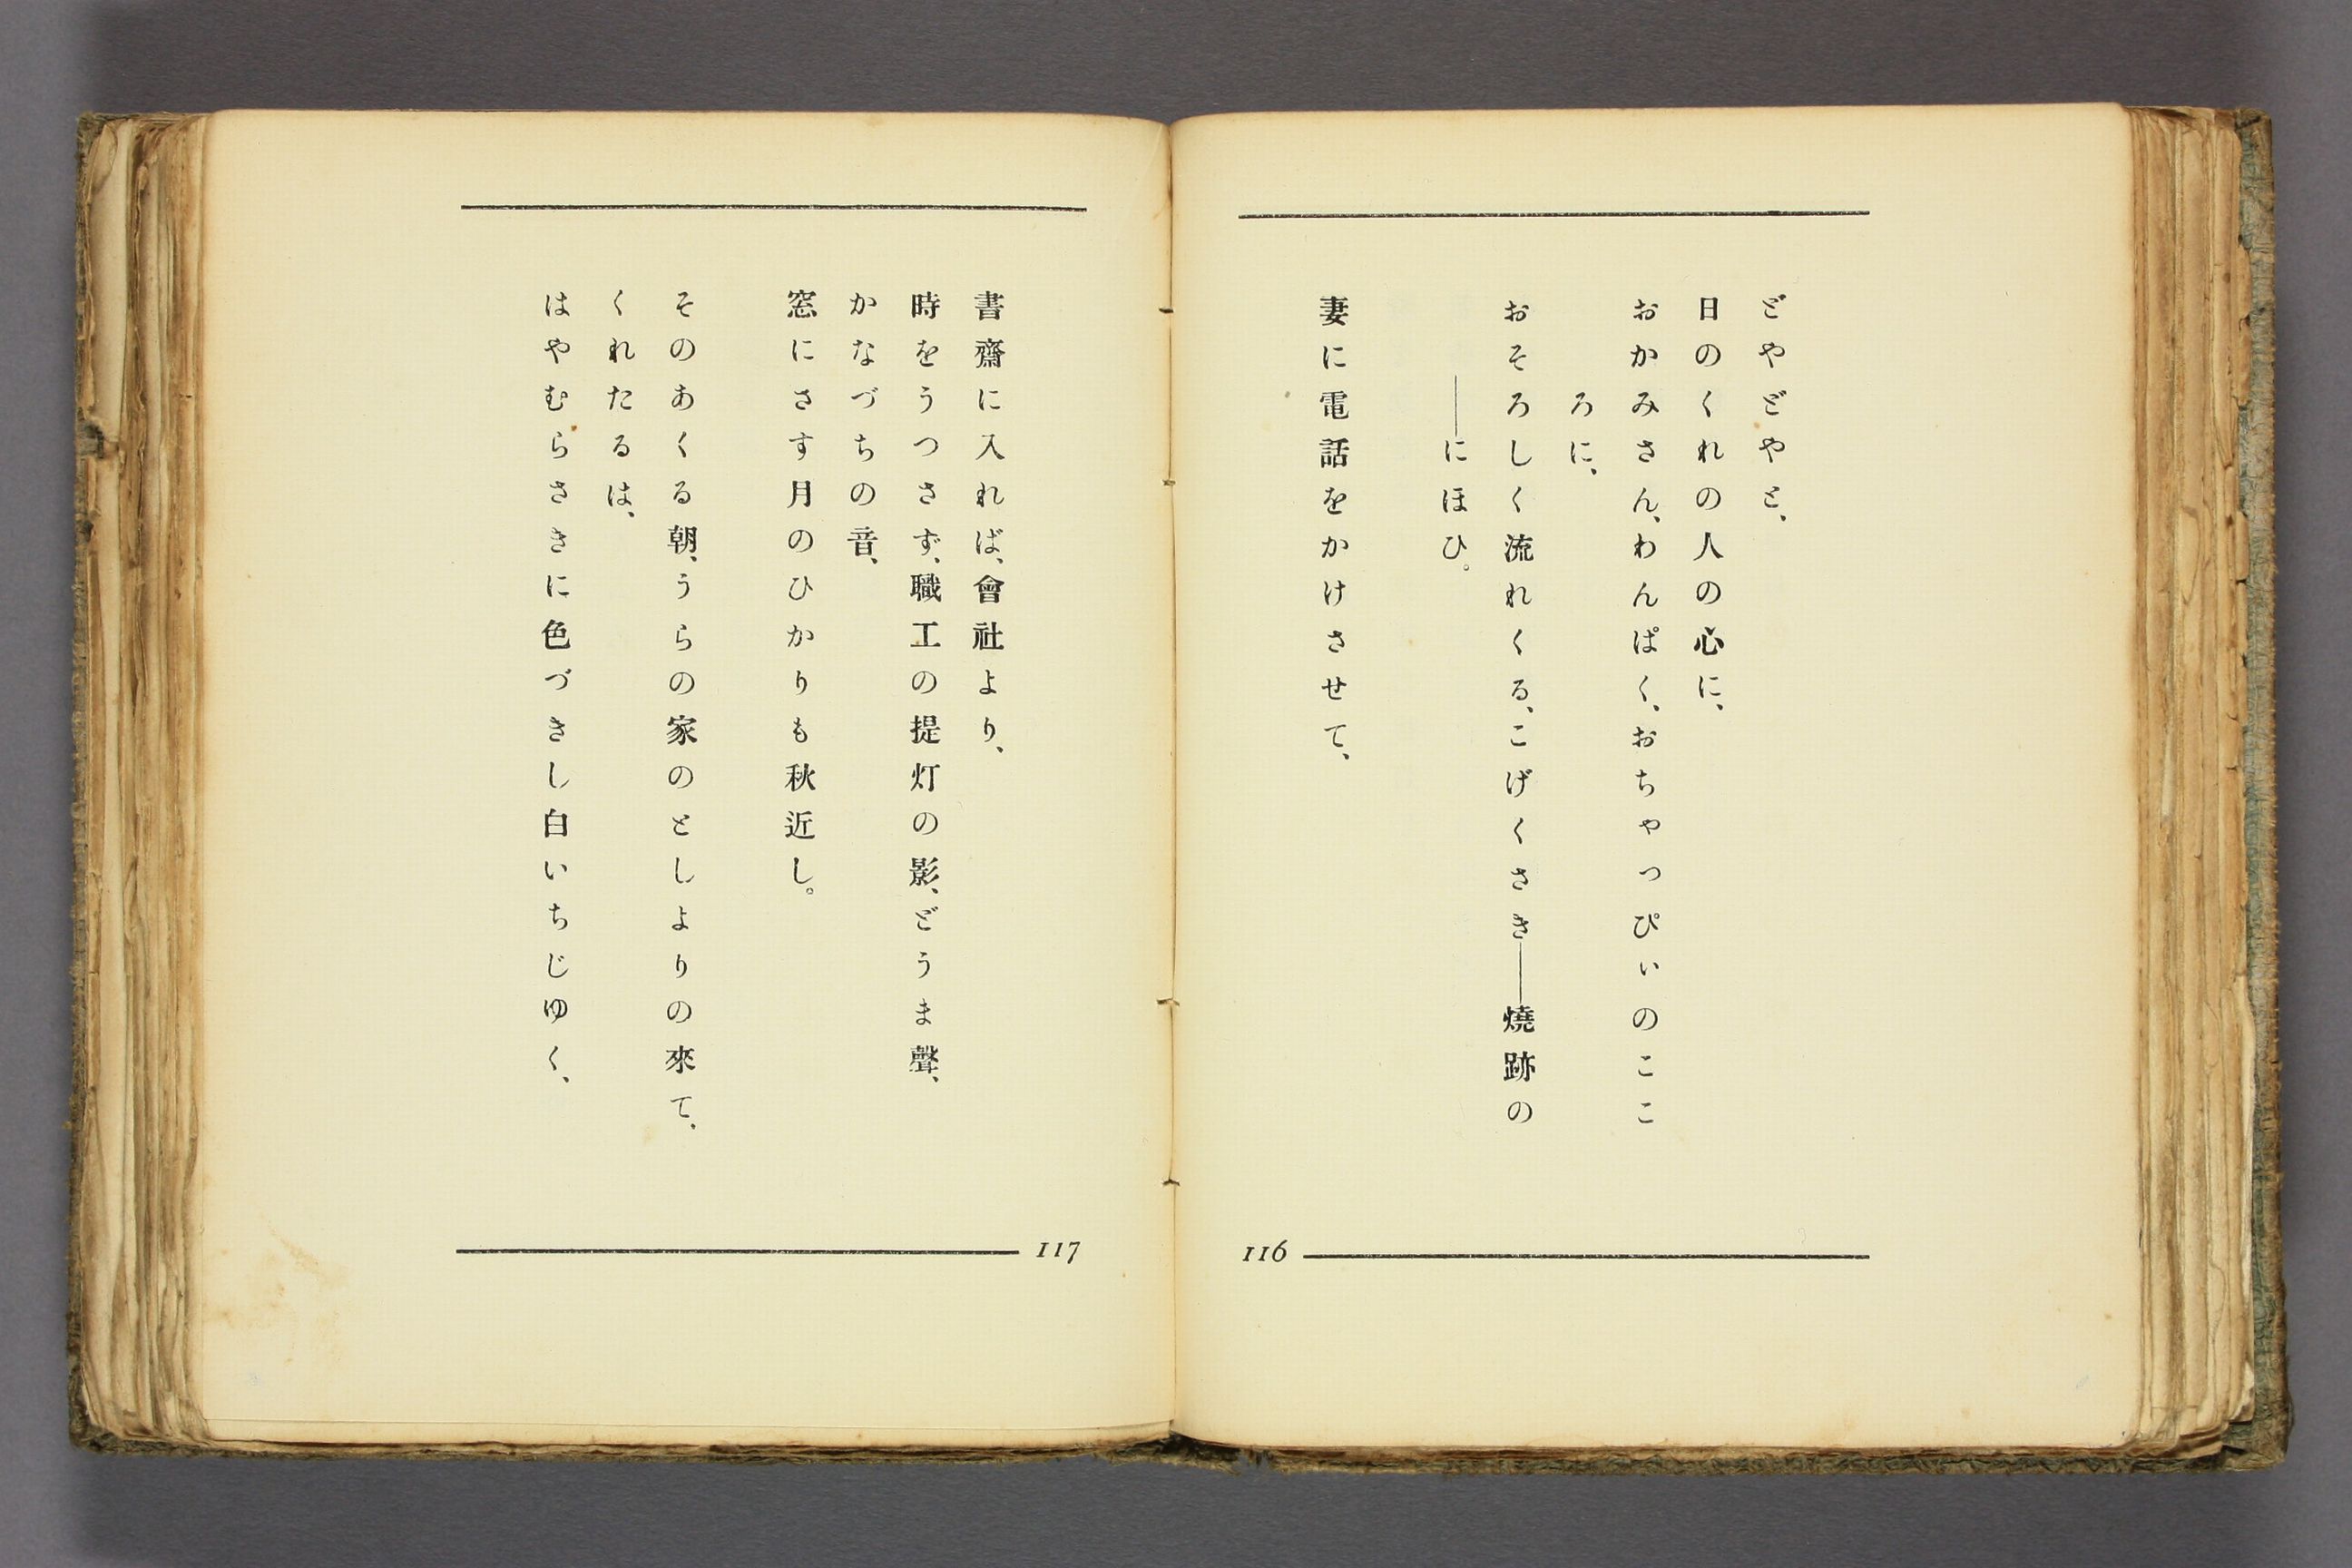 どやどやと、
日のくれの人の心に、
おかみさん、わんぱく、おちゃっぴぃのここ
ろに、
おそろしく流れくる、こげくさき──燒跡の
──にほひ。
妻に電話をかけさせて、
116
書齋に入れば、會社より、
時をうつさず、職工の提灯の影、どうま聲、
かなづちの音、
窓にさす月のひかりも秋近し。
そのあくる朝、うらの家のとしよりの來て、
くれたるは、
はやむらさきに色づきし白いちじゆく、
117